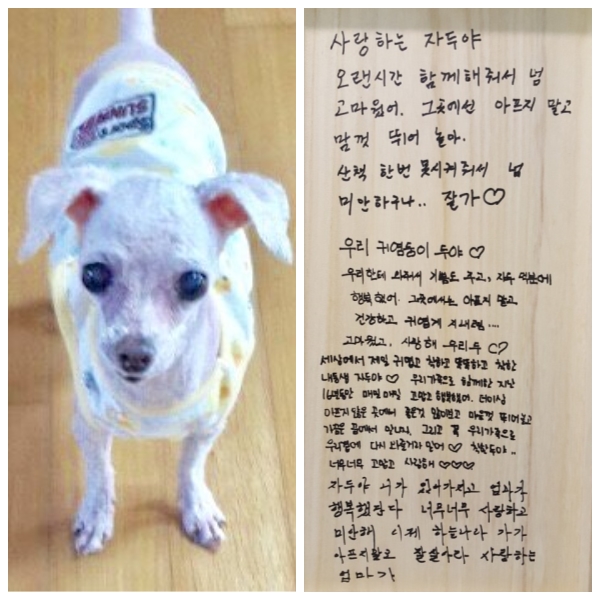 SUNNY
사랑하는 자두야
오랜시간 함께해줘서 넘
고마웠어. 그곳에선 아프지 말고
맘껏 뛰어 놀아.
산책 한번 못시켜줘서 넘
미안하구나.. 잘가♡
우리 귀염둥이 두야 ♡
우리한테 와줘서 기쁨도 주고, 자두 덕분에
행복했어. 그곳에서는 아프지 말고
건강하고 귀엽게 지내렴....
고마웠고, 사랑해 우리두 ♡
세상에서 제일 귀엽고 착하고 똑똑하고 착한
내동생 자두야♡ 우리가족으로 함께한 지난
16년동안 매일매일 고맙고 행복했어. 더이상
아프지 않은 곳에서 좋은것 많이먹고 마음껏 뛰어놀고
곳에서 만나자. 그리고 꼭 우리가족으로
우리곁에 다시 와줄거라 믿어♡ 착한두야..
너무너무 고맙고 사랑해♡♡♡
자두야 너가 있어가지고 엄마가
행복했단다 너무너무 사랑하고
미안해 이제 하늘나라 가가
아프지말고 잘살아라 사랑하는
엄마가